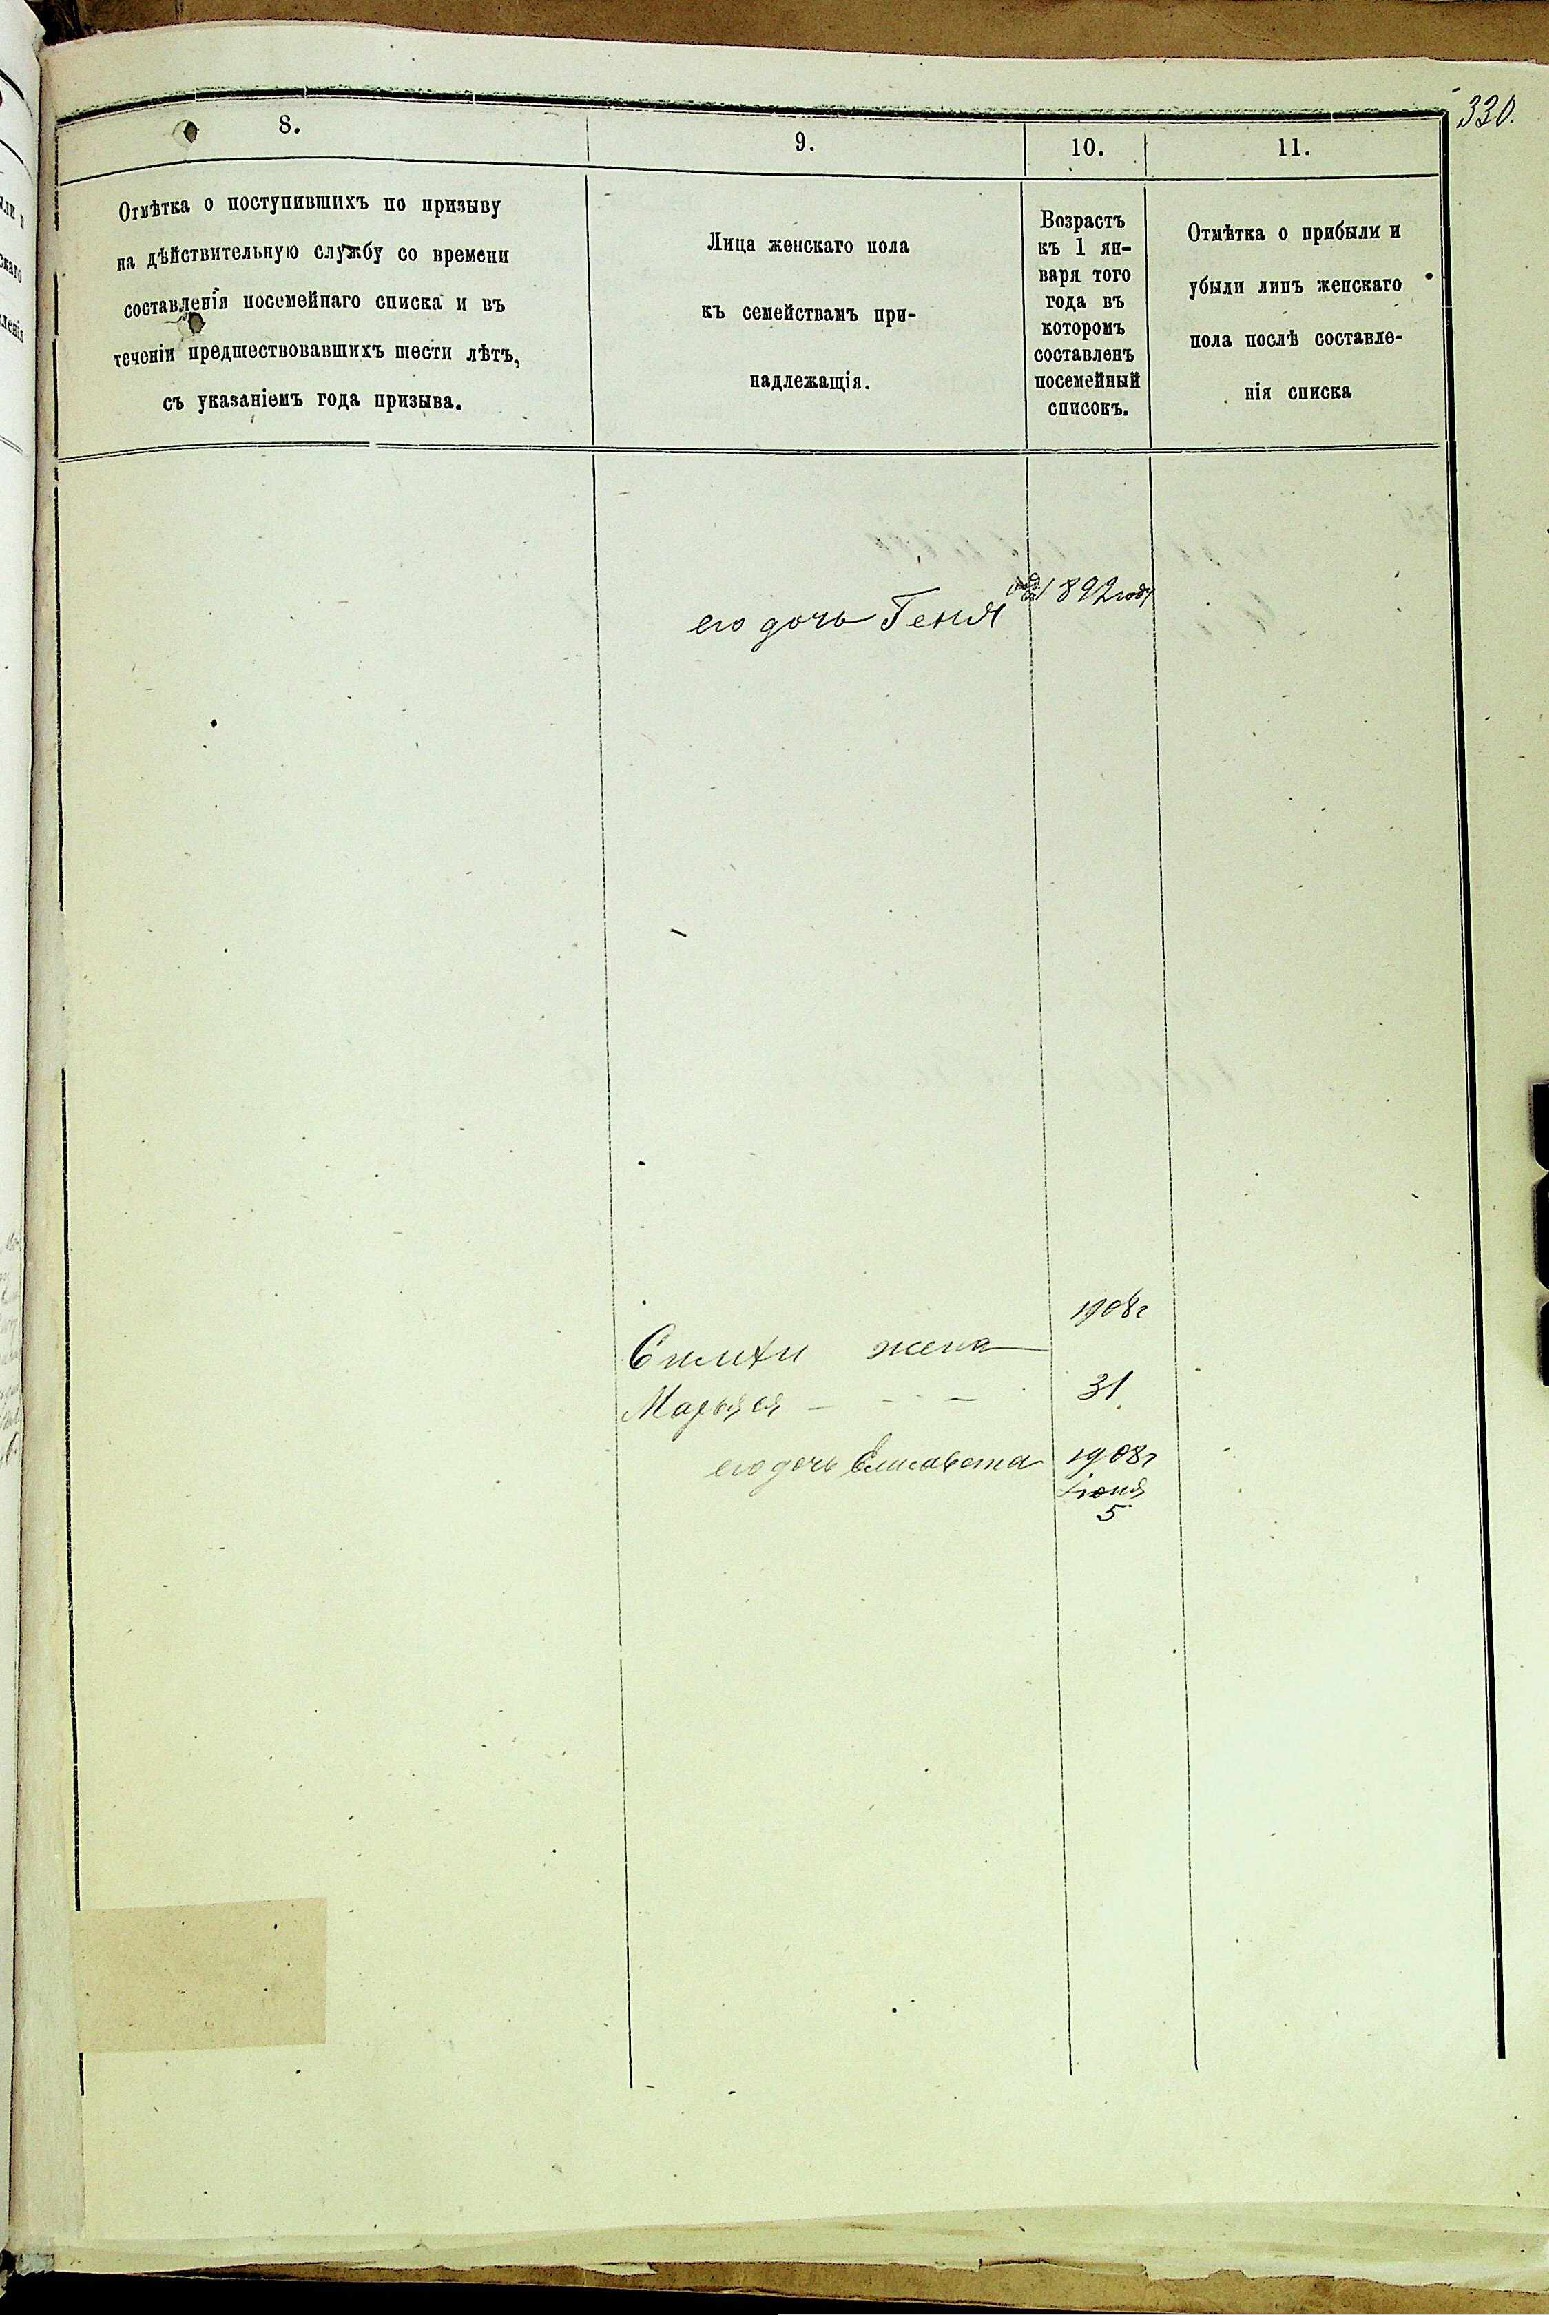 330.
8.
9.
10.
11.
Отмѣтка о поступившихъ по призыву
на дѣйствительную службу со времени
составленія посемейнаго списка и въ
теченіи предшествовавшихъ шести лѣтъ,
съ указаніемъ года призыва.
Лица женскаго пола
къ семействамъ при-
надлежащія.
Возрастъ
къ 1 ян-
варя того
года въ
которомъ
составленъ
посемейный
списокъ.
Отмѣтка о прибыли и
убыли лицъ женскаго
пола послѣ составле-
нія списка
его дочь Геня 1892 года
1908г
Симхи жена
Марьяся - - - 31.
его дочь Елисавета 1908г
іюня
5